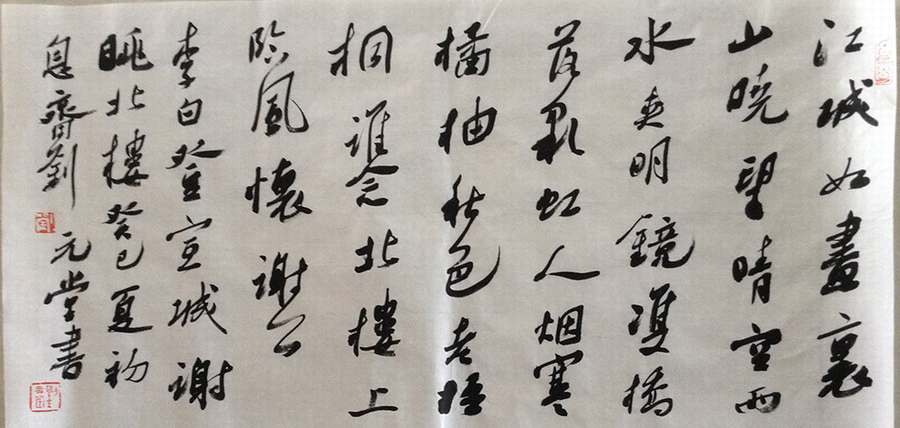 江城如畫裏
山曉望晴空兩
水夾明鏡雙橋
落彩虹人烟寒
橘柚秋色老梧
桐誰念北樓上
臨風懷謝公
李白登宣城謝
眺北樓癸巳夏初
息齋劉元堂書